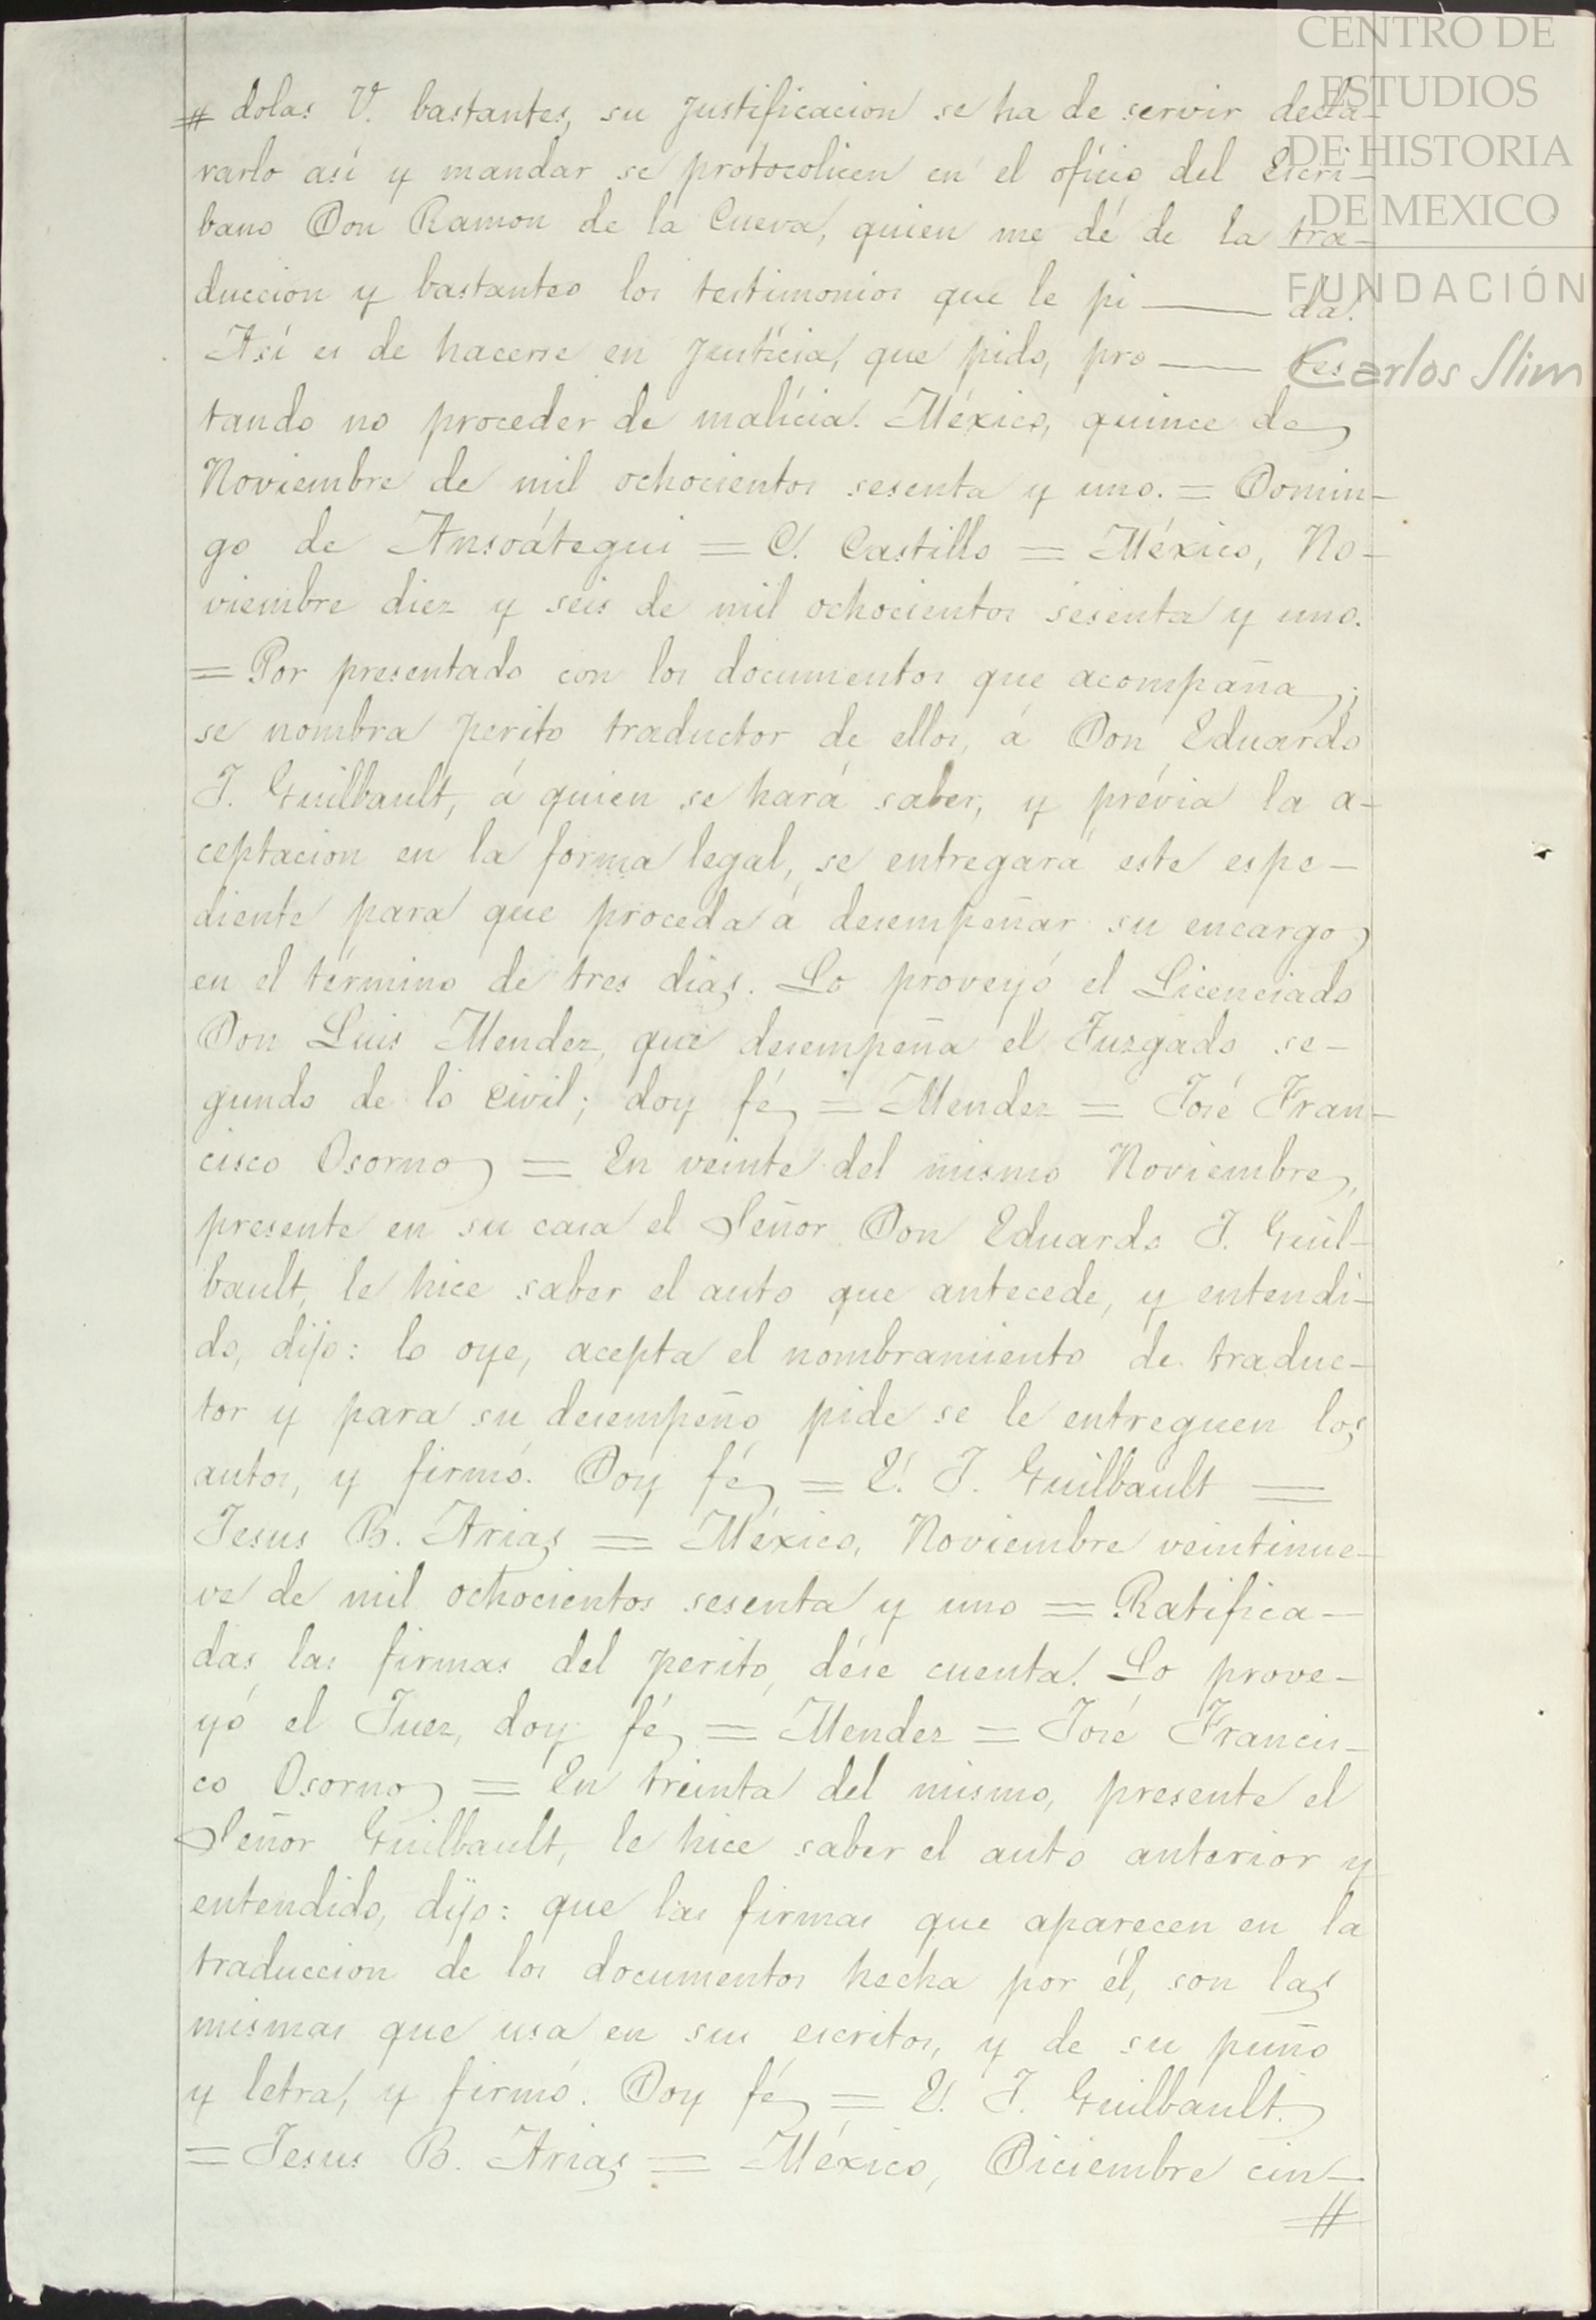 CENTRO DE
ESTUDIOS
DE HISTORIA
DE MEXICO
FUNDACIÓN
Carlos Slim
# dolas V. bastantes, su justificacion se ha de servir decla-
rarlo así y mandar se protocolicen en el oficio del Escri-
bano Don Ramon de la Cueva, quien me dé de la tra-
duccion y bastanteo los testimonios que le pi — da.
Así es de hacerse en justicia, que pido, pro — tes
tando no proceder de malicia. México, quince de
Noviembre de mil ochocientos sesenta y uno. = Domin-
go de Ansoátegui = C. Castillo = México, No-
viembre diez y seis de mil ochocientos sesenta y uno.
= Por presentado con los documentos que acompaña;
se nombra perito traductor de ellos, á Don Eduardo
J. Guilbault, á quien se hará saber, y prévia la a-
ceptacion en la forma legal, se entregará este espe-
diente para que proceda á desempeñar su encargo
en el término de tres dias. Lo proveyó el Licenciado
Don Luis Mendez, que desempeña el Juzgado se-
gundo de lo civil; doy fé = Mendez = José Fran-
cisco Osorno = En veinte del mismo Noviembre,
presente en su casa el Señor Don Eduardo J. Guil-
bault, le hice saber el auto que antecede, y entendi-
do, dijo: lo oye, acepta el nombramiento de traduc-
tor y para su desempeño pide se le entreguen los
autos, y firmó. Doy fé = E. J. Guilbault =
Jesus B. Arias = México, Noviembre veintinue-
ve de mil ochocientos sesenta y uno = Ratifica-
das las firmas del perito, dése cuenta. Lo prove-
yó el Juez, doy fé = Mendez = José Francis-
co Osorno = En treinta del mismo, presente el
Señor Guilbault, le hice saber el auto anterior y
entendido, dijo: que las firmas que aparecen en la
traduccion de los documentos hecha por él, son las
mismas que usa en sus escritos, y de su puño
y letra, y firmó. Doy fé = E. J. Guilbault.
= Jesus B. Arias = México, Diciembre cin-
#